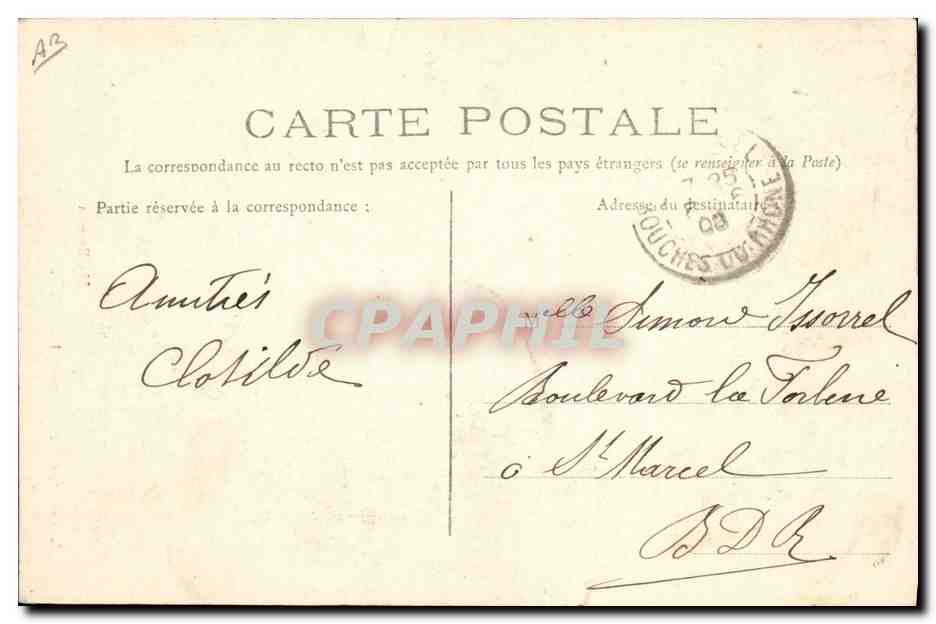 AB
CARTE POSTALE
La correspondance au recto n'est pas acceptée par tous les pays étrangers (se renseigner à la Poste)
Partie réservée à la correspondance :
Adresse du destinataire
BOUCHES DU RHONE
Amitiés
Clotilde
CPAPHIL
Mlle Simone Issorrel
Boulevard la
à St Marcel
BDR